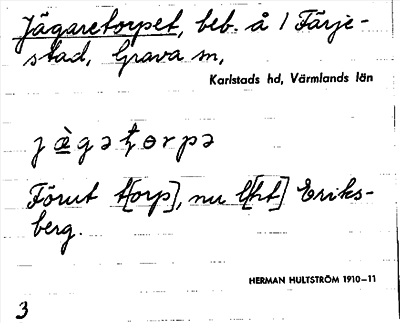 Jägaretorpet, beb. å 1 Färje-
stad, Grava sn,
Karlstads hd, Värmlands län
j æ̀ g ə t̩ ɵ r p ə
Förut t[orp], nu l[ht] Eriks-
berg.
HERMAN HULTSTRÖM 1910–11
3